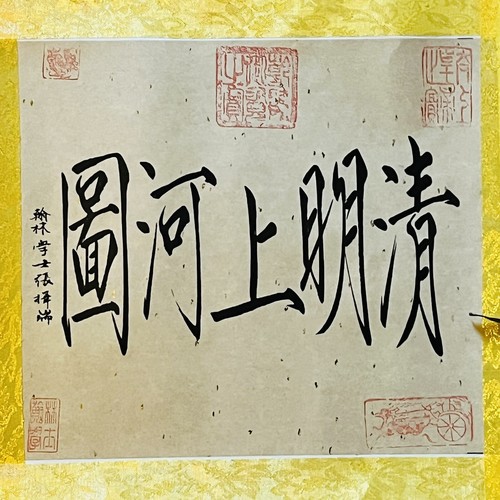 清明上河圖
翰林学士張擇端